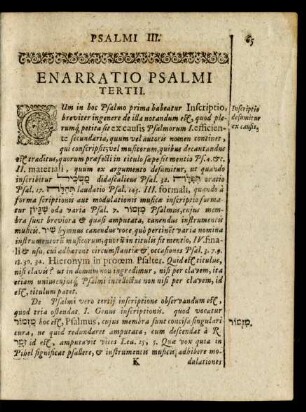 PSALMI III. 65
ENARRATIO PSALMI
TERTII.
CUm in hoc Psalmo prima habeatur Inscriptio,
breviter in genere de illa notandum est, quod ple-
rumq; petita sit ex causis Psalmorum I. efficiente
secundaria, quum vel autoris nomen continet,
qui conscripsit; vel musicorum, quibus decantandus
est traditus, quorum præfecti in titulo sæpe fit mentio Ps. 4. &c.
II. materiali, quum ex argumento desumitur, ut quando
inscribitur משכיל didascalicus Psal. 32. תפלה oratio
Psal. 17. תהלה laudatio Psal. 145. III. formali, quando à
forma scriptionis aut modulationis musicæ inscriptio forma-
tur שגיון oda varia Psal. 7. מזמור Psalmus, cujus mem-
bra sunt breviora & quasi amputata, canendus instrumentis
musicis. שיר hymnus canendus voce, quò pertinēt varia nomina
instrumentorū musicorum, quorū in titulis fit mentio, IV. fina-
li & usu, cui adhæret circumstantia & occasiones Psal. 3. 7. 34.
Hieronym in proœm Psalter. Quid est titulus,
nisi clavis? ut in domum non ingreditur, nisi per clavem, ita
etiam uniuscujusq; Psalmi intellectus non nisi per clavem, id
est, titulum patet.
De Psalmi vero tertij inscriptione observandum est,
quod tria ostendat. I. Genus inscriptionis. quod vocatur
מזמור hoc est, Psalmus, cujus membra sunt concisa singulari
cura, ne quid redundaret amputata, cum descendat à R
זמר id est, amputavit vites Lev. 25, 3. Qua vox quia in
Pihel significat psallere, & instrumentis musicis, adhibere mo-
K dulationes
Inscriptio
desumitur
ex causis.
מזמור.